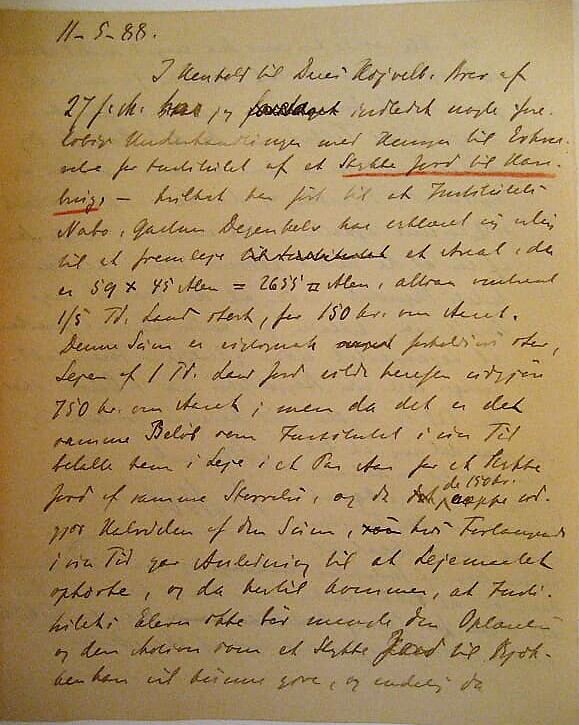 11-5-88.
I Henhold til Deres Højvelb. Brev af
27 f. M. har jeg indledet nogle fore-
løbige Underhandlinger med Hensyn til Erhver-
velse for Institutet af et Stykke Jord til Have-
brug, – hvilket har ført til at Institutets
Nabo, Gartner har erklæret sig villig
til at fremleje et Areal, der
er 59 x 45 Alen = 2655 □ Alen, altsaa omtrent
1/5 Td. Land stort, for 150 kr. om Aaret.
Denne Sum er vistnok meget forholdsvis stor,
Lejen af 1 Td. Land Jord vilde herefter udgjøre
750 kr. om Aaret; men da det er det
samme Beløb som Institutet i sin Tid
betalte i Leje i et Par Aar for et Stykke
Jord af samme Størrelse, og da de 150 kr. næppe ud-
gjør Halvdelen af den Sum, hvis Forlangende
i sin Tid gav Anledning til at Lejemaalet
ophørte, og da hertil kommer, at Insti-
tutets Elever ofte bør mangle den
og den Motion som et Stykke Jord til Kjøk-
kenhave vil kunne give, og endelig da